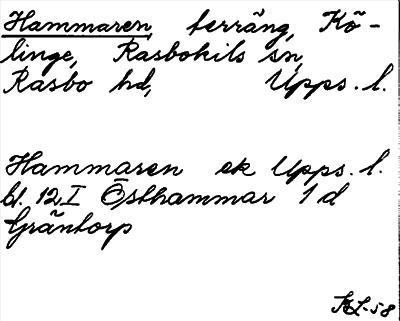 Hammaren, terräng, Kö-
linge, Rasbokils sn,
Rasbo hd, Upps. l.
Hammaren ek Upps. l.
bl. 12 I Östhammar 1 d
Gräntorp